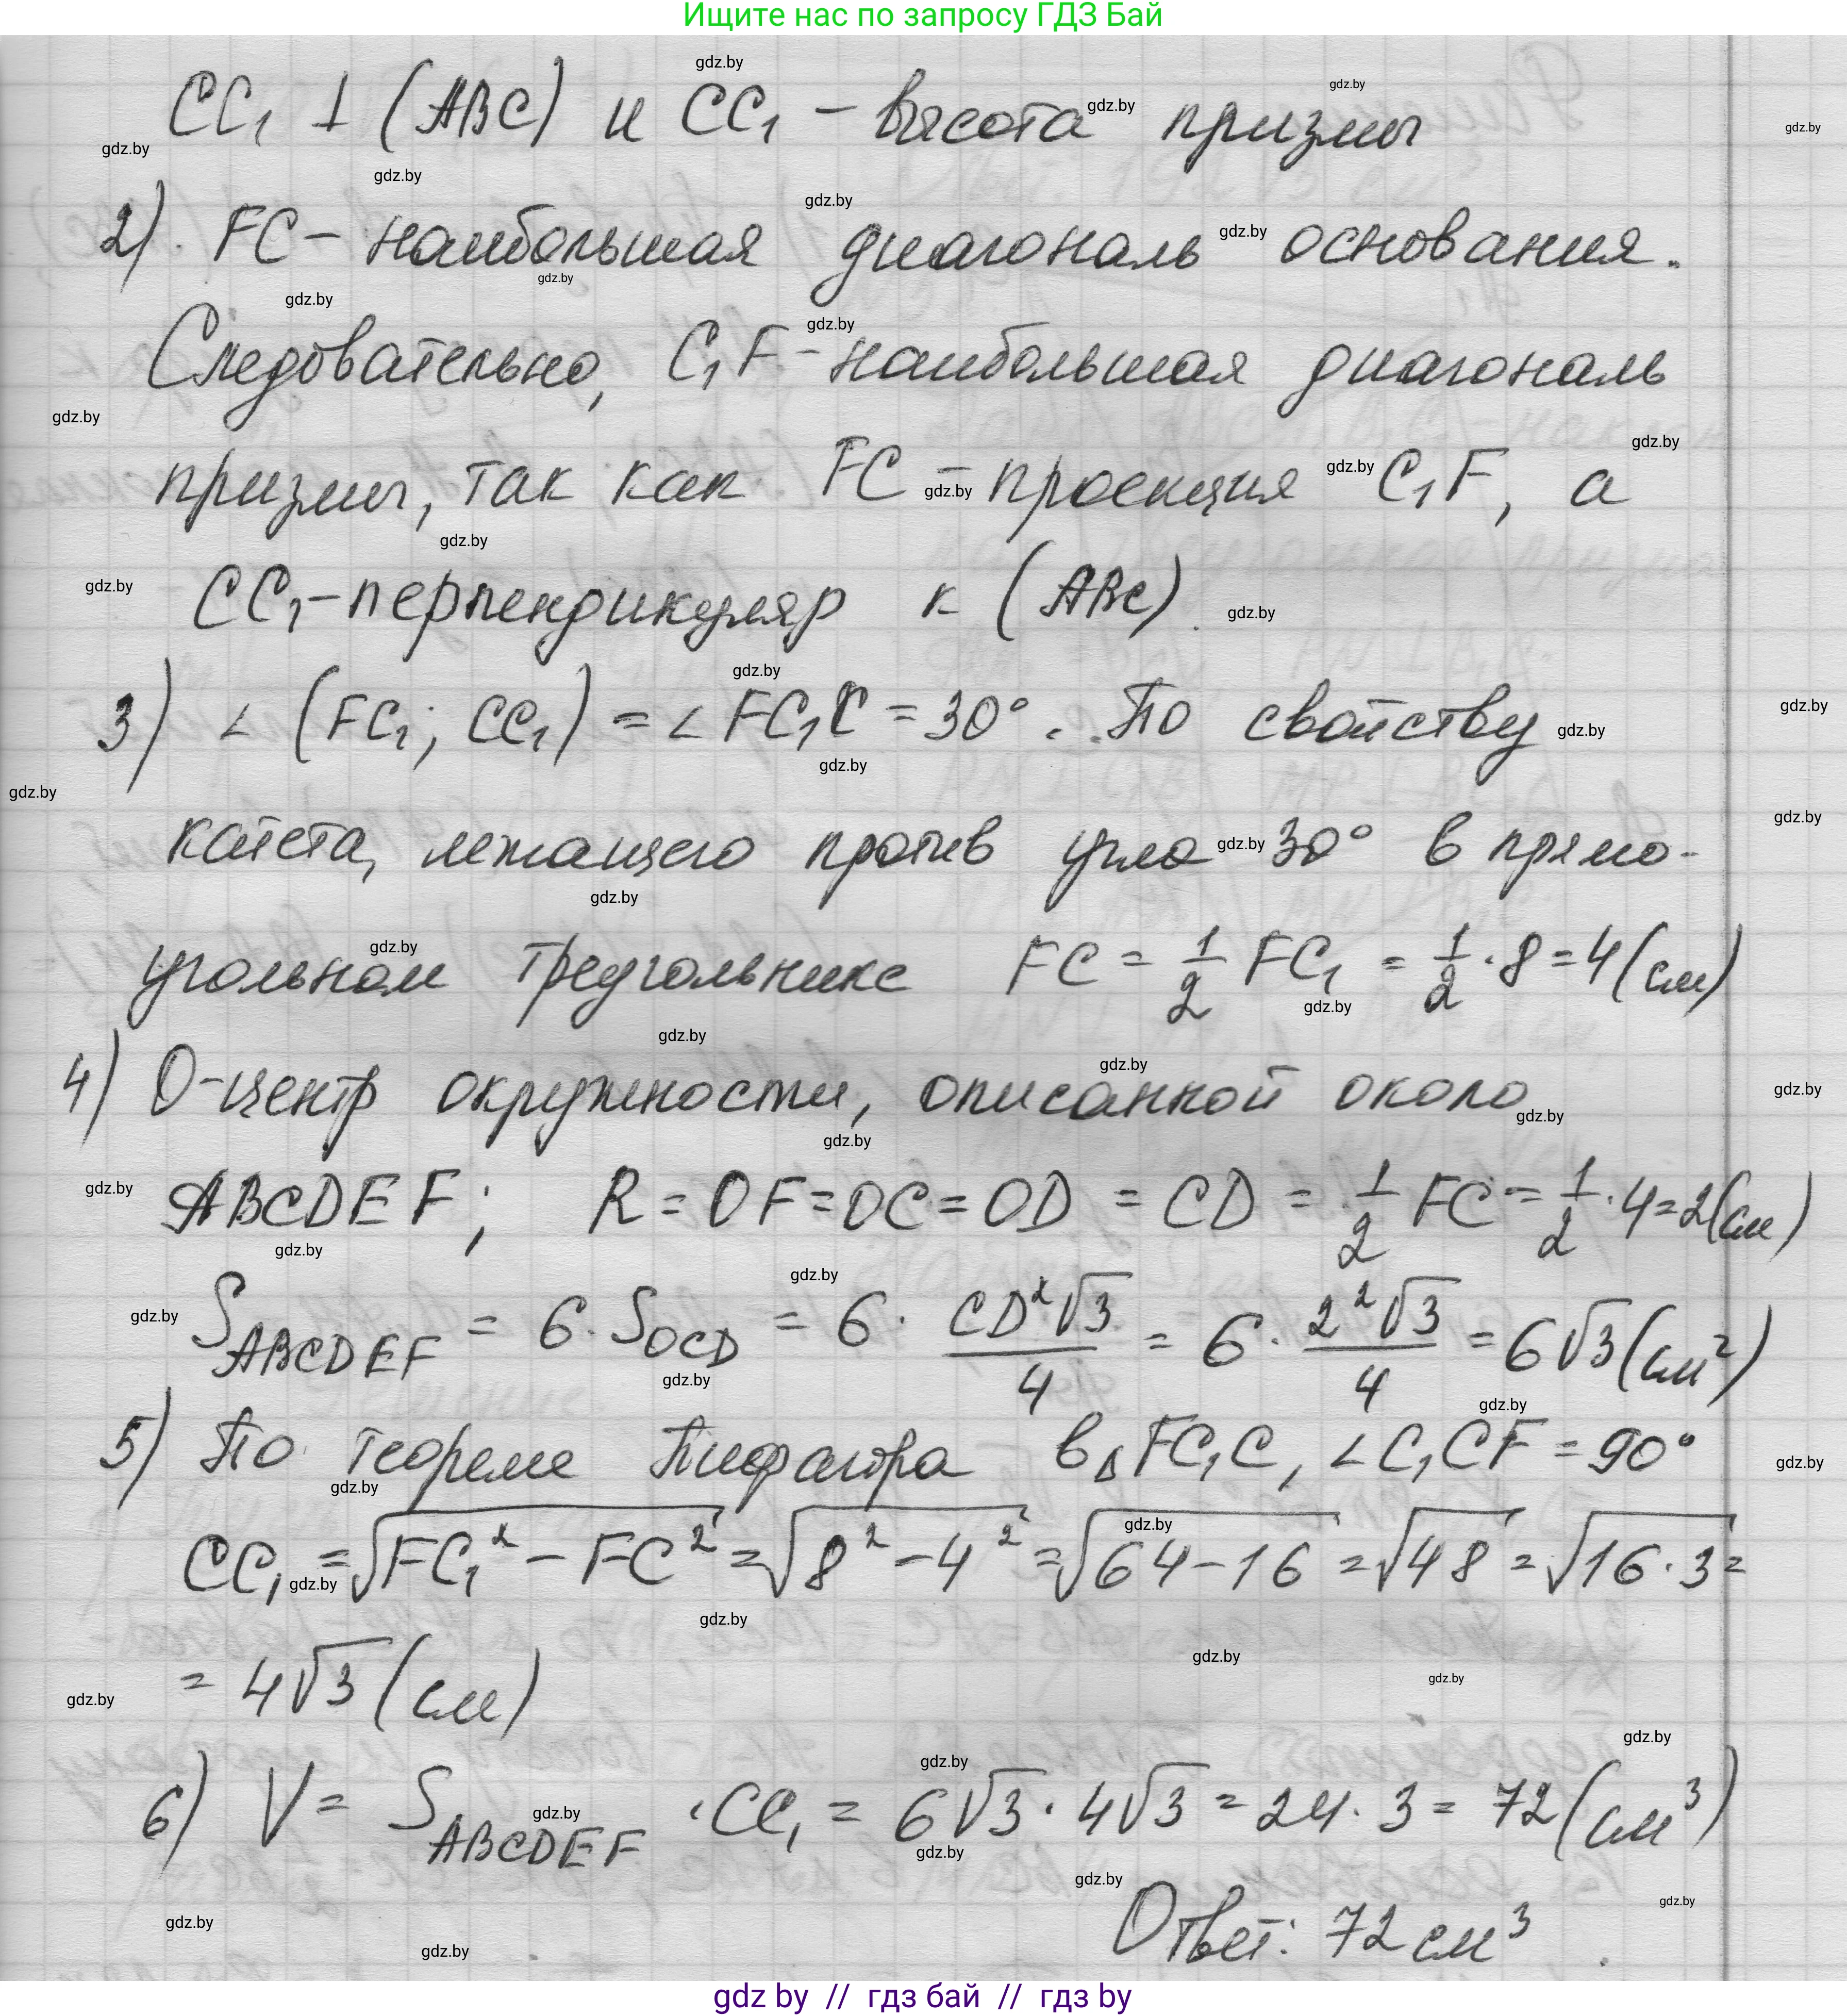 Ищите нас по запросу ГДЗ Бай
CC₁ ⊥ (ABC) и CC₁ – высота призмы
2) FC – наибольшая диагональ основания.
Следовательно, C₁F – наибольшая диагональ
призмы, так как FC – проекция C₁F, а
CC₁ – перпендикуляр к (ABC).
3) ∠ (FC₁; CC₁) = ∠ FC₁C = 30°. По свойству
катета, лежащего против угла 30° в прямо-
угольном треугольнике FC = 1/2 FC₁ = 1/2 · 8 = 4 (см)
4) O – центр окружности, описанной около
ABCDEF; R = OF = OC = OD = CD = 1/2 FC = 1/2 · 4 = 2 (см)
S_ABCDEF = 6 · S_OCD = 6 · CD²√3/4 = 6 · 2²√3/4 = 6√3 (см²)
5) По теореме Пифагора в △ FC₁C, ∠C₁CF = 90°
CC₁ = √(FC₁² – FC²) = √(8² – 4²) = √(64 – 16) = √48 = √(16 · 3) =
= 4√3 (см)
6) V = S_ABCDEF · CC₁ = 6√3 · 4√3 = 24 · 3 = 72 (см³)
Ответ: 72 см³
gdz by // гдз бай // гдз by